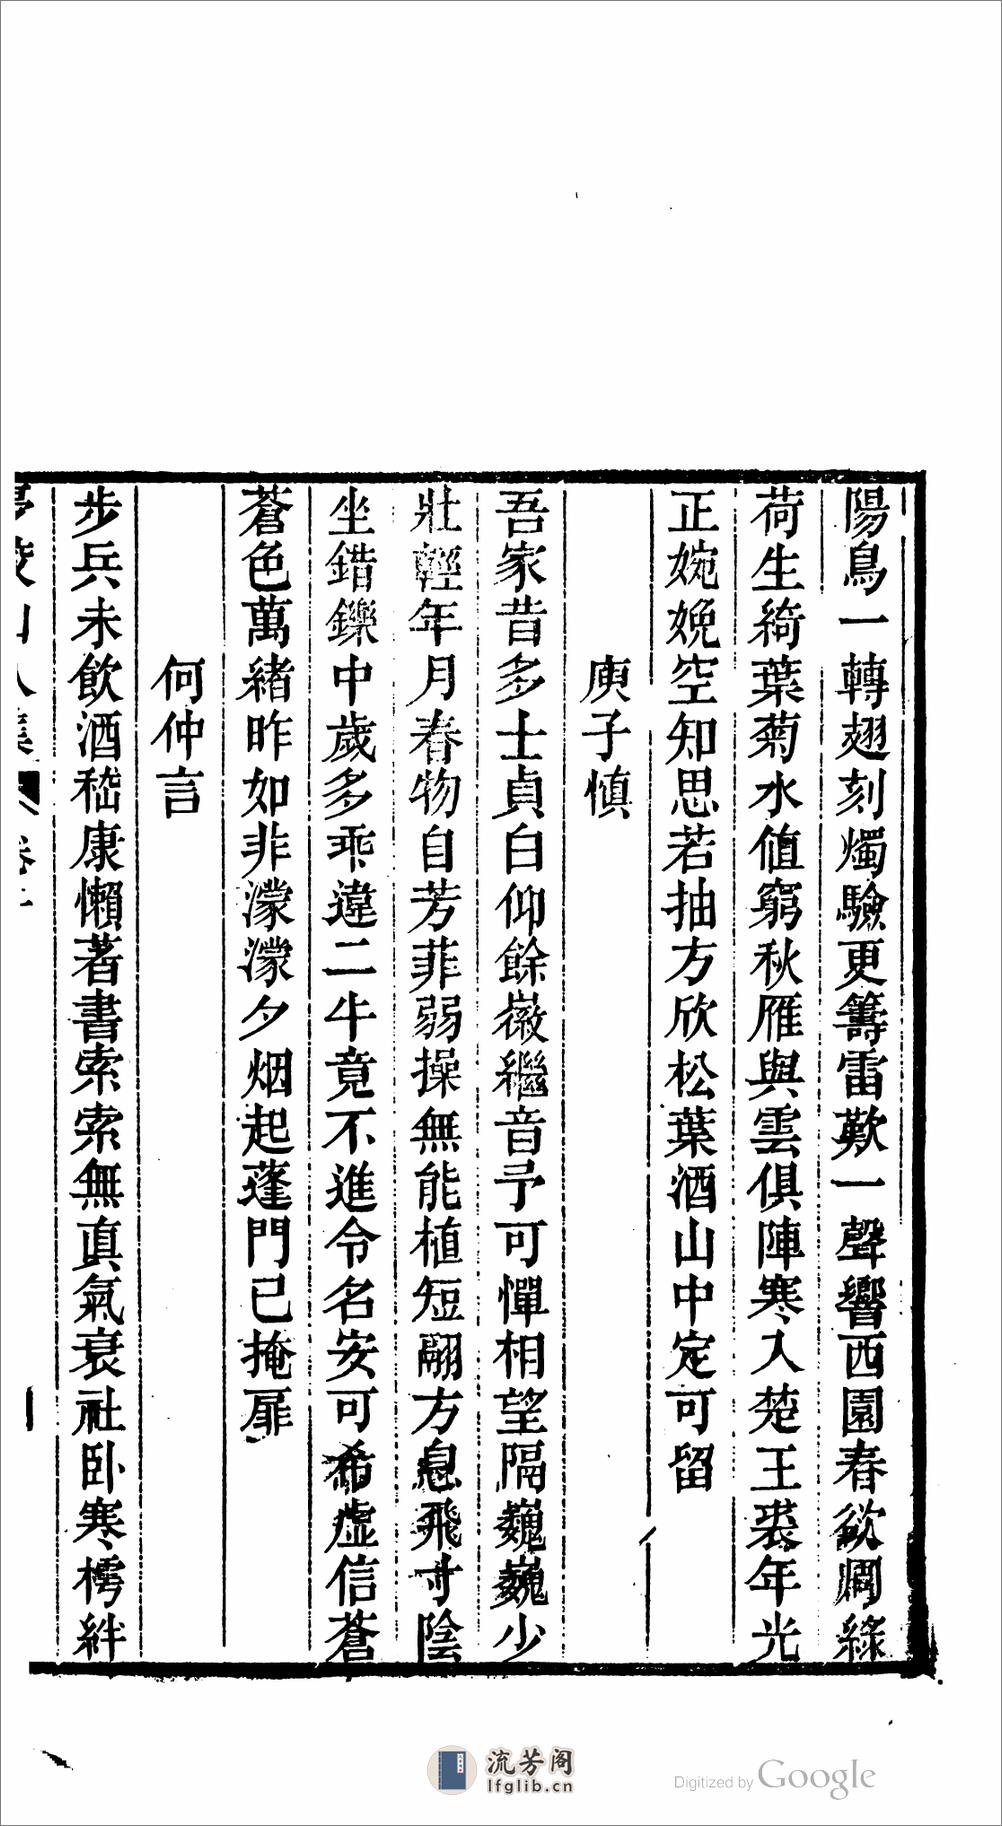 陽鳥一轉翅刻燭驗更籌雷歎一聲響西園春欲凋綠
荷生綺葉菊水值窮秋雁與雲俱陣寒入楚王裘年光
正婉娩空知思若抽方欣松葉酒山中定可留
庾子慎
吾家昔多士貞白仰餘徽繼音予可憚相望隔巍巍少
壯輕年月春物自芳菲弱操無能植短翮方息飛寸陰
坐錯鑠中歲多乖違二牛竟不進令名安可希虛信蒼
蒼色萬緒昨如非濛濛夕烟起蓬門已掩扉
何仲言
步兵未飲酒嵇康懶著書索索無真氣衰社卧寒樗絆
卷
流芳阁
lfglib.cn
Digitized by Google